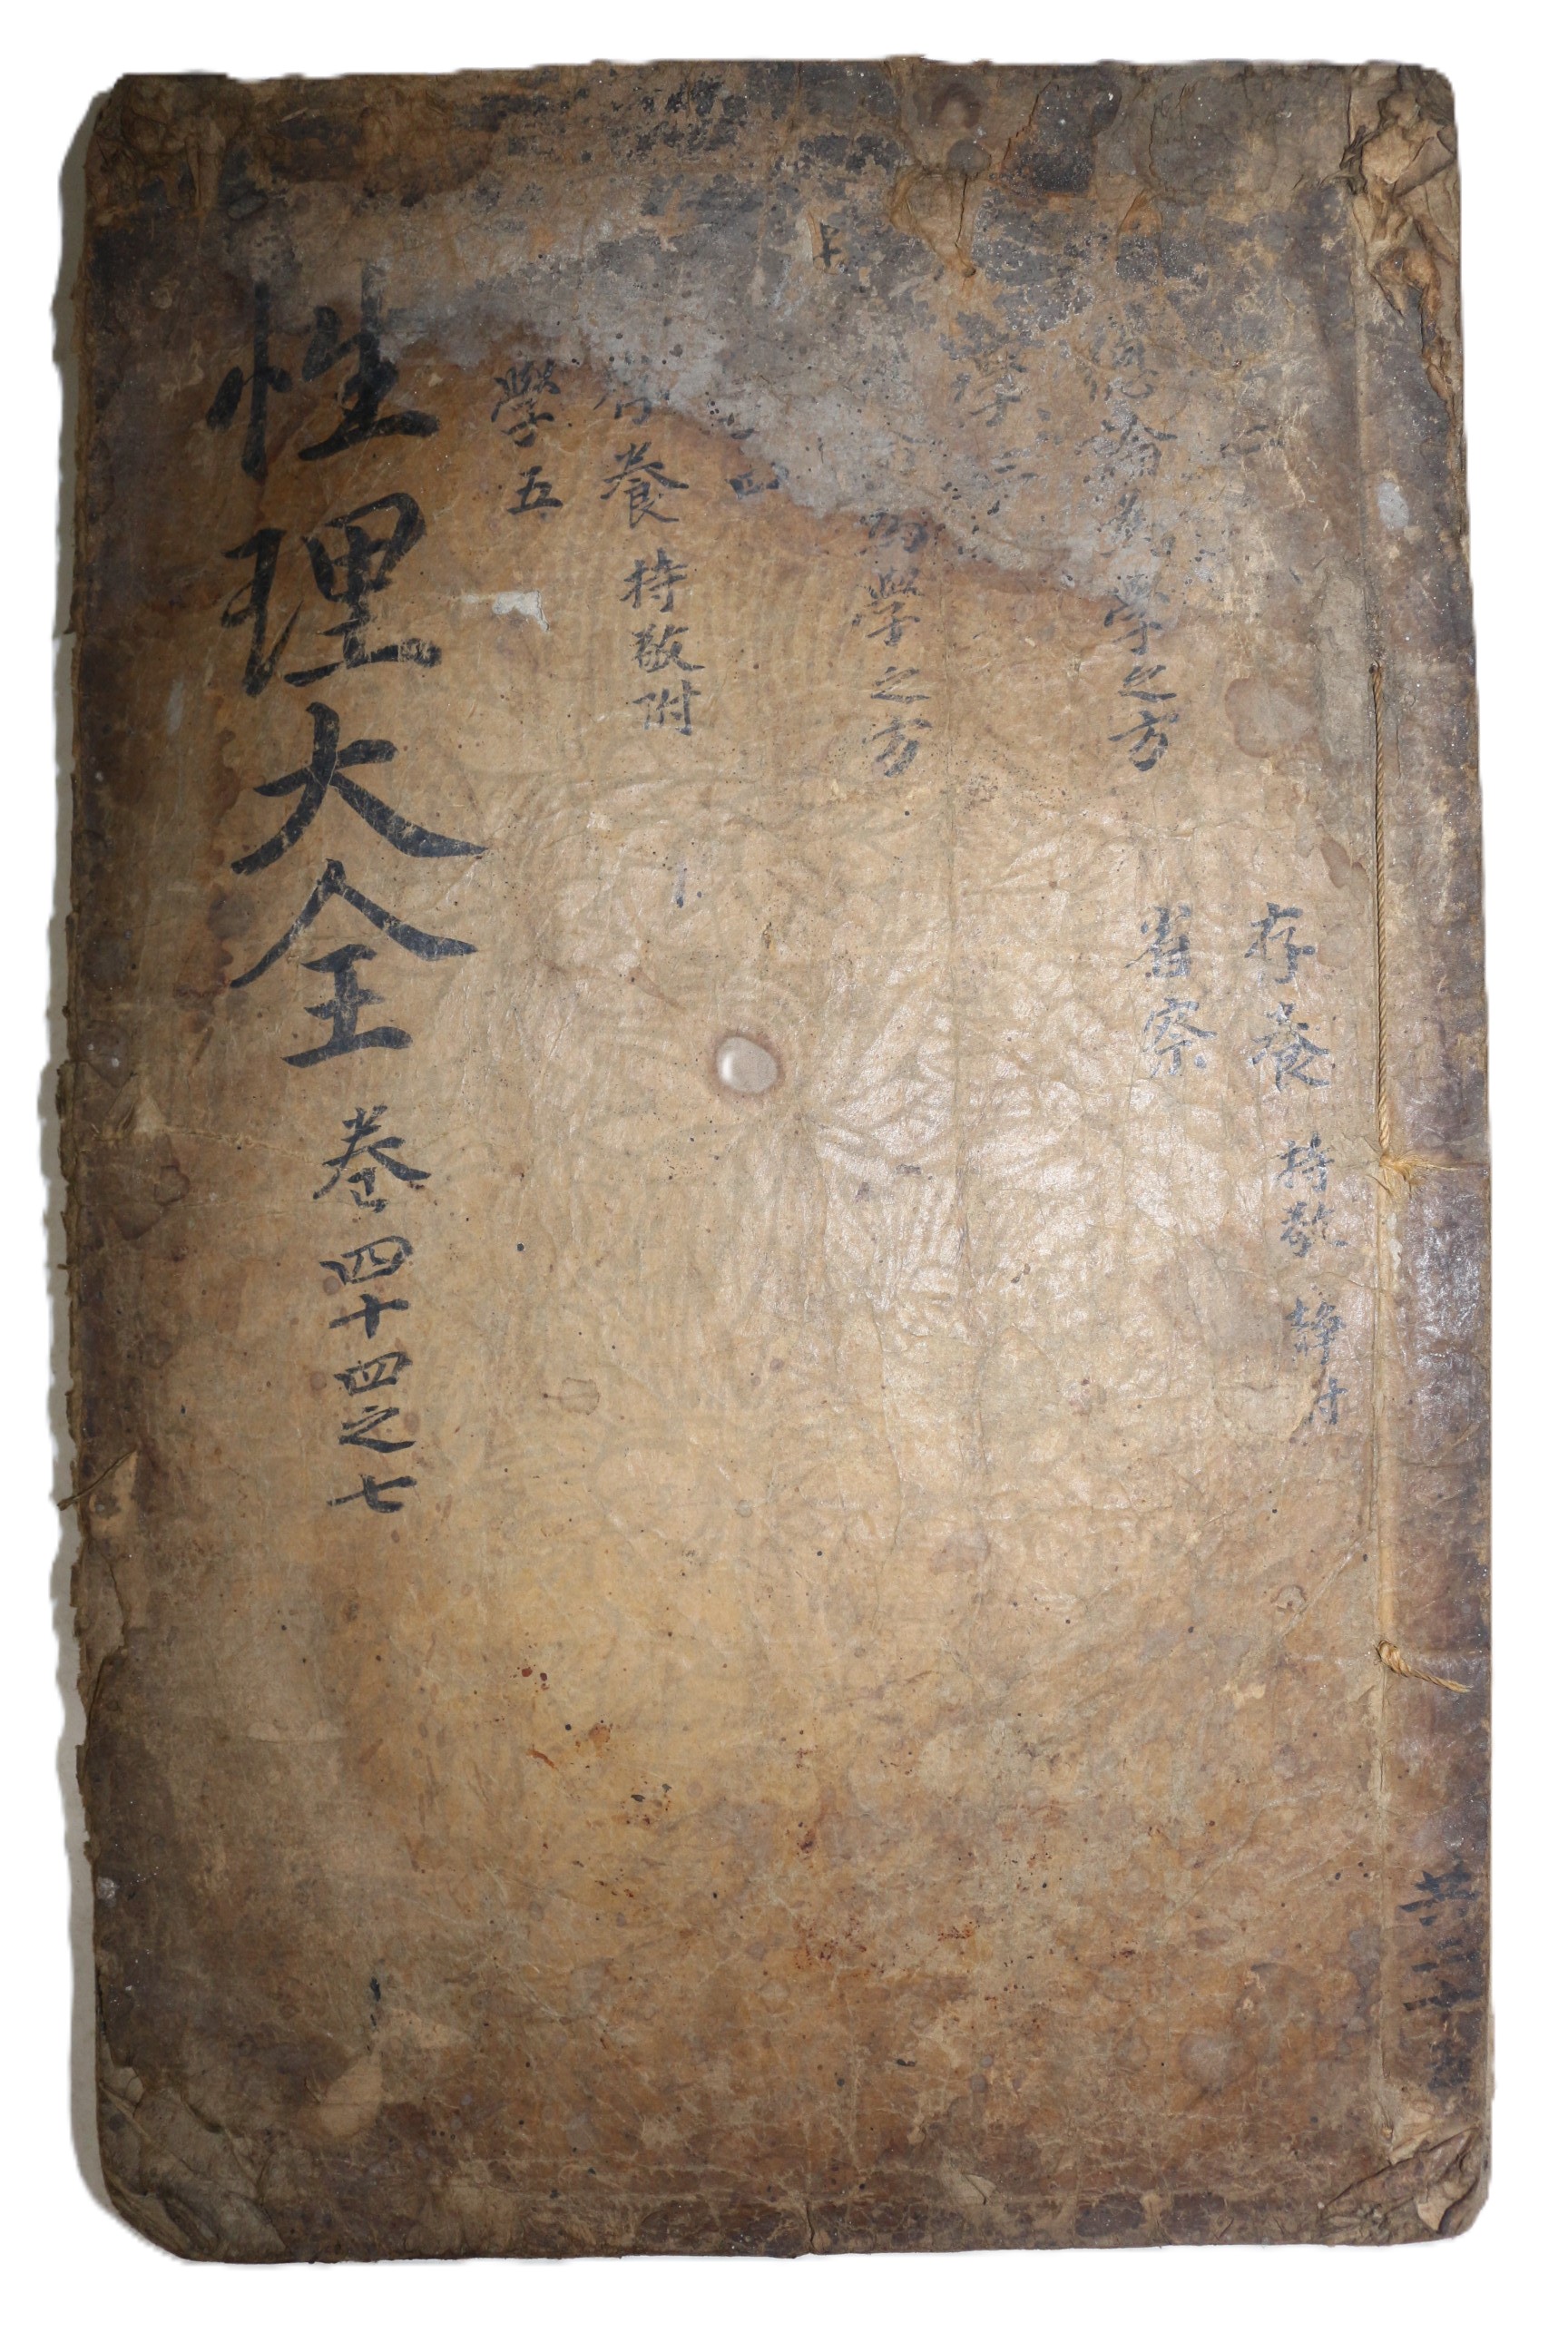 共
存養 持敬 靜
總論為學之方 省察
學
為學之方
四
養 持敬附
學五
性理大全 卷四十四之七